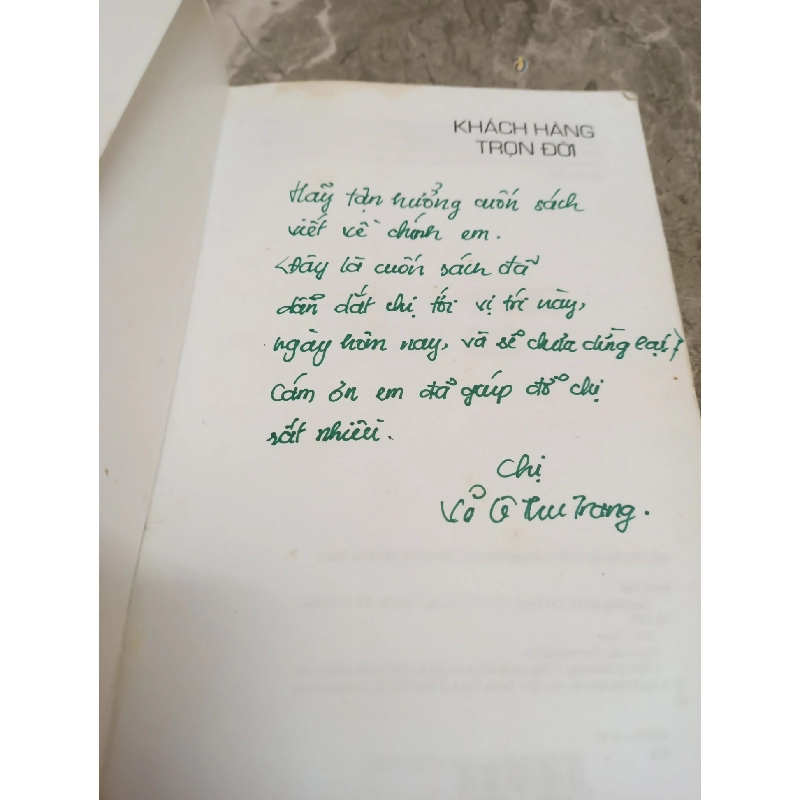 KHÁCH HÀNG
TRỌN ĐỜI
Hãy tận hưởng cuốn sách
viết về chính em.
Đây là cuốn sách đã
dẫn dắt chị tới vị trí này,
ngày hôm nay, và sẽ chưa dừng lại!
Cám ơn em đã giúp đỡ chị
rất nhiều.
Chị
Võ Lê Thu Trang.